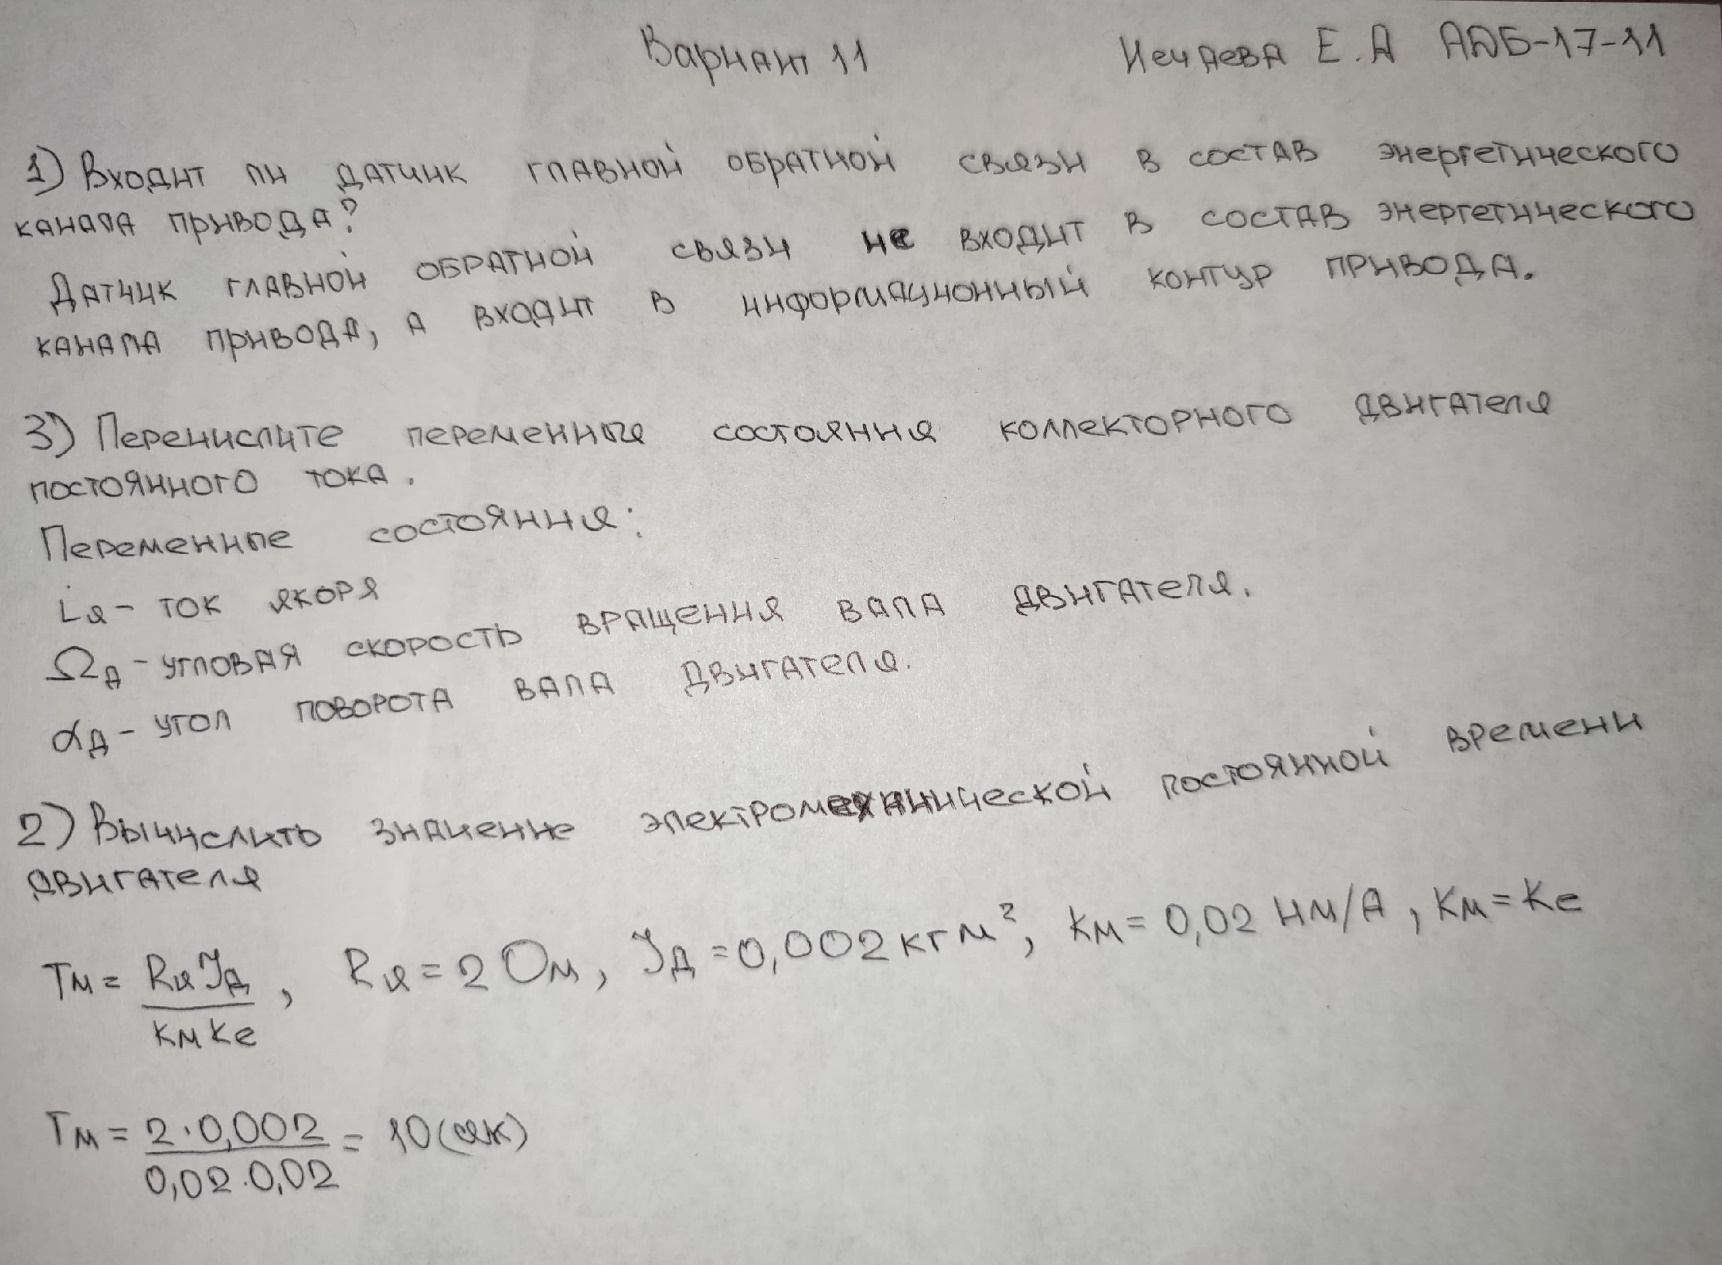 Вариант 11 Нечаева Е.А АДБ-17-11
1) Входит ли датчик главной обратной связи в состав энергетического
канала привода?
Датчик главной обратной связи не входит в состав энергетического
канала привода, а входит в информационный контур привода.
3) Перечислите переменные состояния коллекторного двигателя
постоянного тока.
Переменные состояния:
iя - ток якоря
Ωд - угловая скорость вращения вала двигателя.
αд - угол поворота вала двигателя.
2) Вычислить значение электромеханической постоянной времени
двигателя
Tм = RяJд / kм ke , Rя = 2 Ом, Jд = 0,002 кгм², kм = 0,02 Нм/А, kм = ke
Tм = 2·0,002 / 0,02·0,02 = 10 (сек)